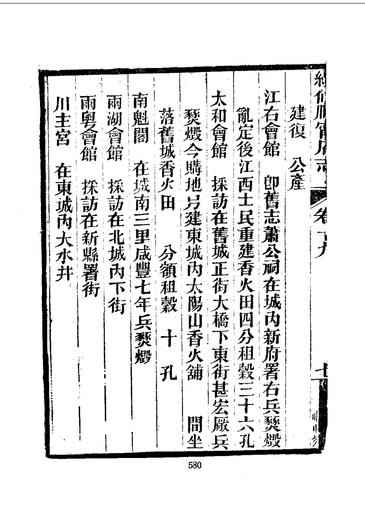 續修順寧府志
卷十九
七
建復 公產
江右會館 卽舊志蕭公祠在城內新府署右兵燹燬
亂定後江西士民重建香火田四分租穀三十六孔
太和會館 採訪在舊城正街大橋下東街甚宏厰兵
燹燬今購地另建東城內太陽山香火舖 間坐
落舊城香火田 分領租穀 十 孔
南魁閣 在城南三里咸豐七年兵燹燬
兩湖會館 採訪在北城內下街
兩粤會館 採訪在新縣署街
川主宮 在東城內大水井
580